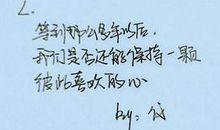 2.
等到那么多年以后,
我们是否还能保持一颗
彼此喜欢的心
by: